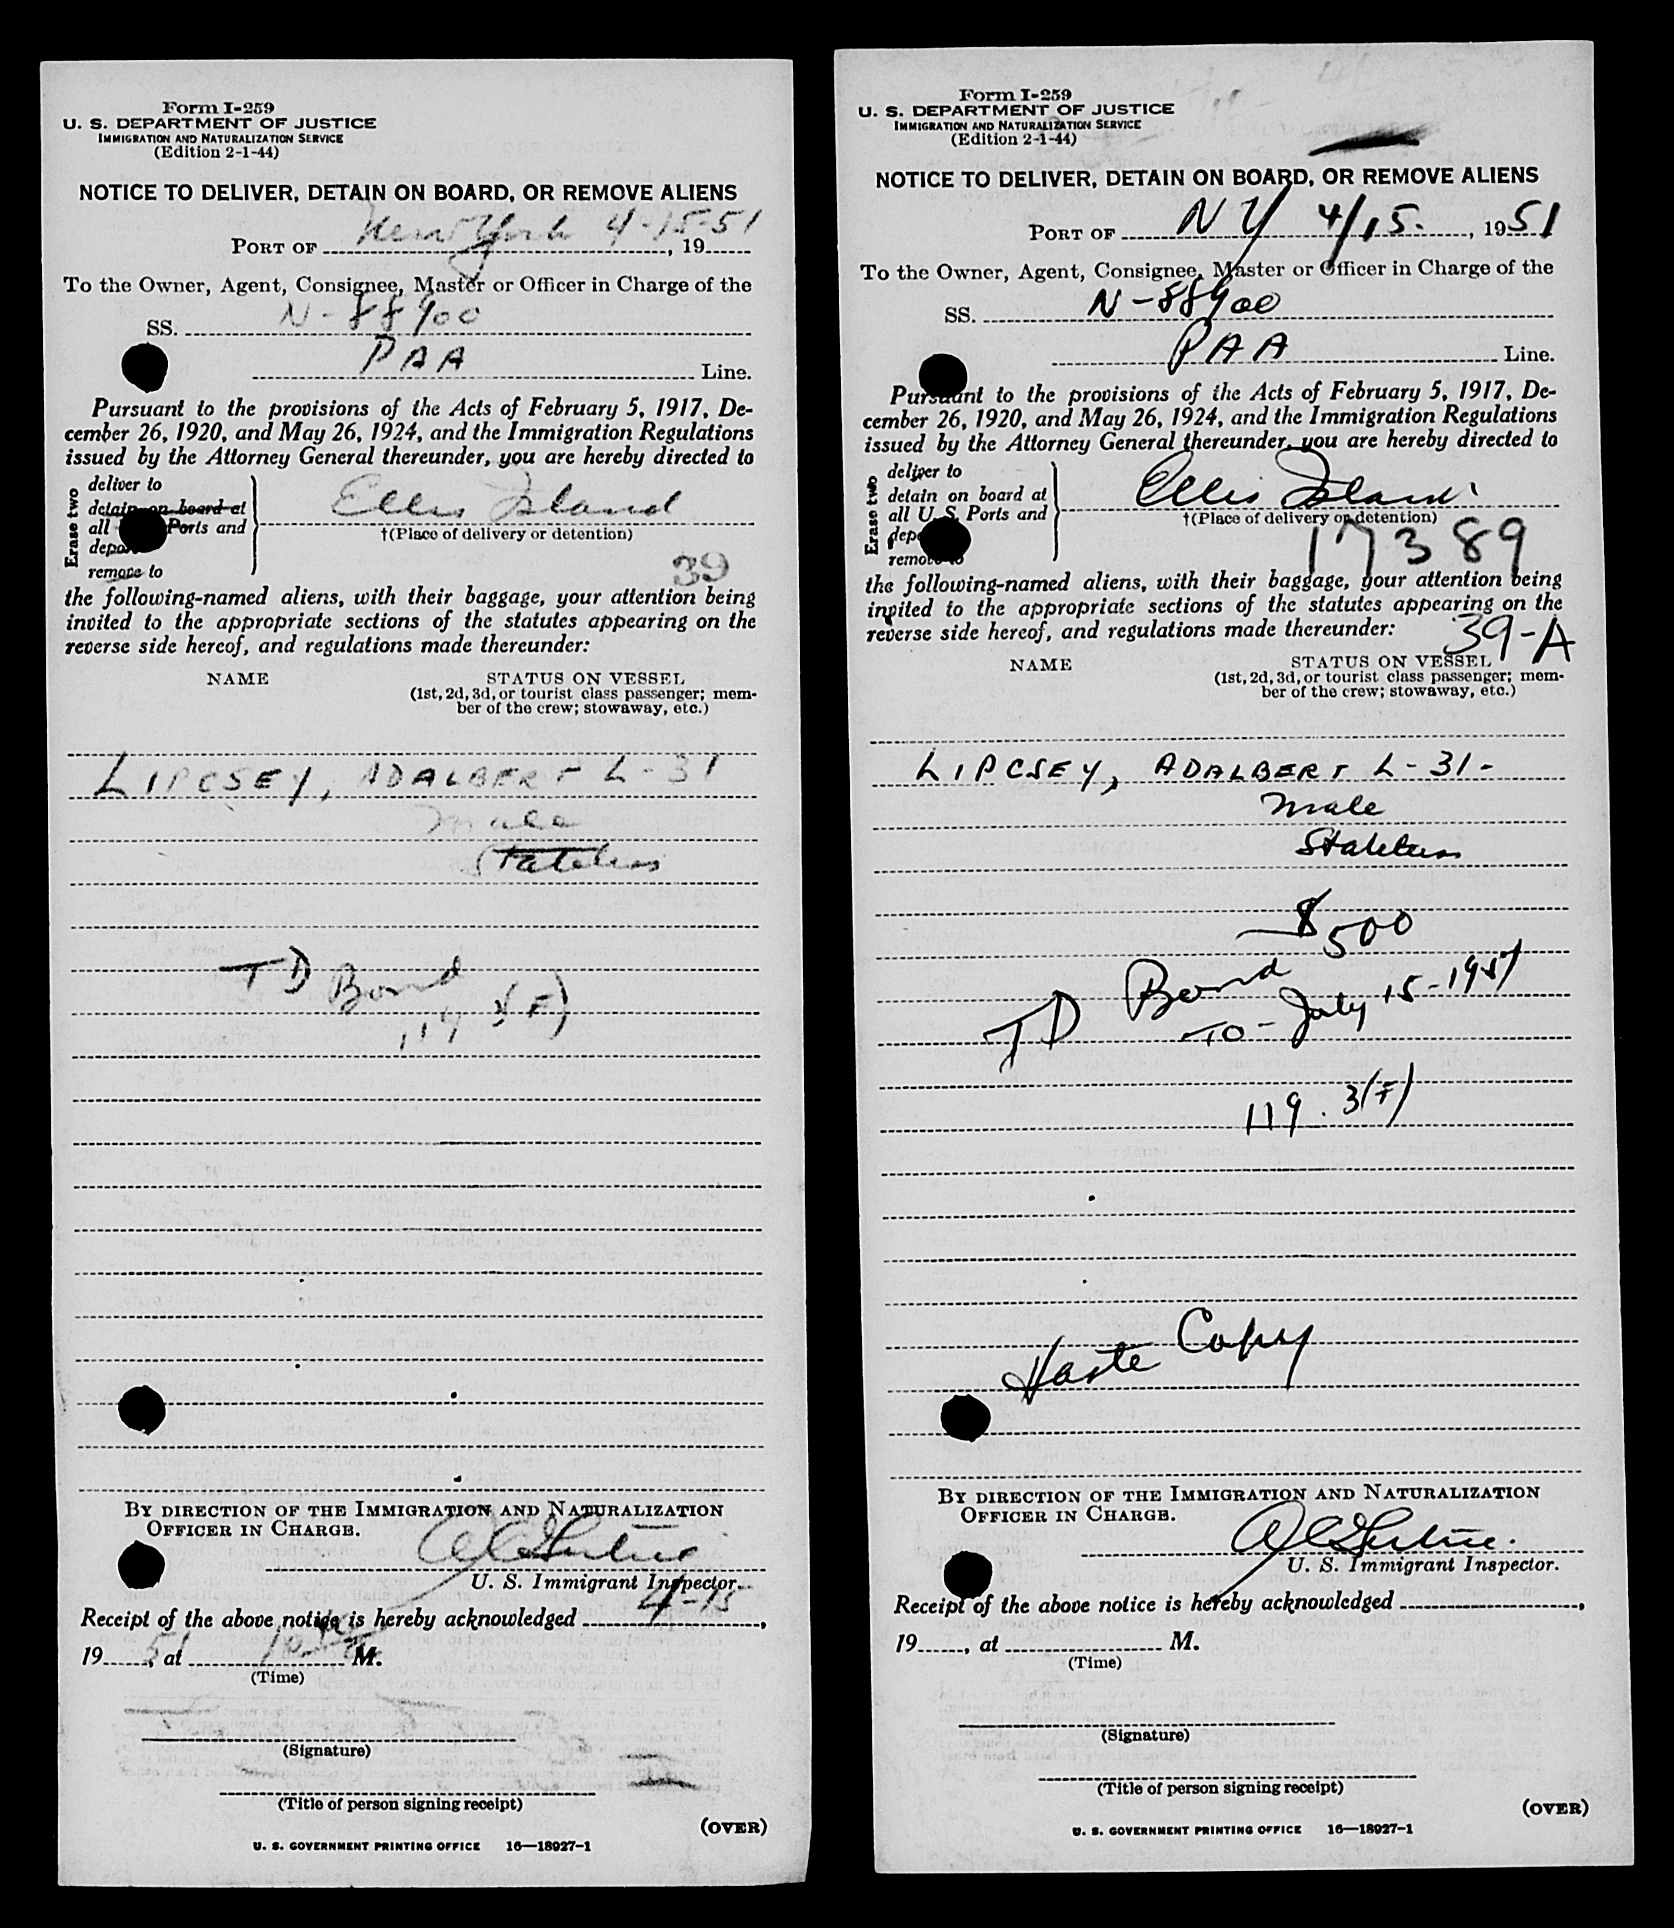 Form I-259
U. S. DEPARTMENT OF JUSTICE
IMMIGRATION AND NATURALIZATION SERVICE
(Edition 2-1-44)
NOTICE TO DELIVER, DETAIN ON BOARD, OR REMOVE ALIENS
PORT OF New York 4-15-51, 19
To the Owner, Agent, Consignee, Master or Officer in Charge of the
SS. N-88900
PAA Line.
Pursuant to the provisions of the Acts of February 5, 1917, De-
cember 26, 1920, and May 26, 1924, and the Immigration Regulations
issued by the Attorney General thereunder, you are hereby directed to
Erase two
deliver to
detain on board at
all Ports and
remove to
Ellis Island
†(Place of delivery or detention)
39
the following-named aliens, with their baggage, your attention being
invited to the appropriate sections of the statutes appearing on the
reverse side hereof, and regulations made thereunder:
NAME STATUS ON VESSEL
(1st, 2d, 3d, or tourist class passenger; mem-
ber of the crew; stowaway, etc.)
LIPCSEY, ADALBERT L-31
Male
Stateless
TD Bond
119 3(F)
BY DIRECTION OF THE IMMIGRATION AND NATURALIZATION
OFFICER IN CHARGE.
U. S. Immigrant Inspector.
Receipt of the above notice is hereby acknowledged 4-15,
19 51, at M.
(Time)
(Signature)
(Title of person signing receipt)
(OVER)
U. S. GOVERNMENT PRINTING OFFICE 16—18927-1
Form I-259
U. S. DEPARTMENT OF JUSTICE
IMMIGRATION AND NATURALIZATION SERVICE
(Edition 2-1-44)
NOTICE TO DELIVER, DETAIN ON BOARD, OR REMOVE ALIENS
PORT OF NY 4/15., 1951
To the Owner, Agent, Consignee, Master or Officer in Charge of the
SS. N-88900
PAA Line.
Pursuant to the provisions of the Acts of February 5, 1917, De-
cember 26, 1920, and May 26, 1924, and the Immigration Regulations
issued by the Attorney General thereunder, you are hereby directed to
Erase two
deliver to
detain on board at
all U. S. Ports and
remove to
Ellis Island
†(Place of delivery or detention)
17389
the following-named aliens, with their baggage, your attention being
invited to the appropriate sections of the statutes appearing on the
reverse side hereof, and regulations made thereunder:
39-A
NAME STATUS ON VESSEL
(1st, 2d, 3d, or tourist class passenger; mem-
ber of the crew; stowaway, etc.)
LIPCSEY, ADALBERT L-31-
Male
Stateless
$500
TD Bond
TO - July 15-1951
119.3(F)
Haste Copy
BY DIRECTION OF THE IMMIGRATION AND NATURALIZATION
OFFICER IN CHARGE.
U. S. Immigrant Inspector.
Receipt of the above notice is hereby acknowledged ,
19 , at M.
(Time)
(Signature)
(Title of person signing receipt)
(OVER)
U. S. GOVERNMENT PRINTING OFFICE 16—18927-1